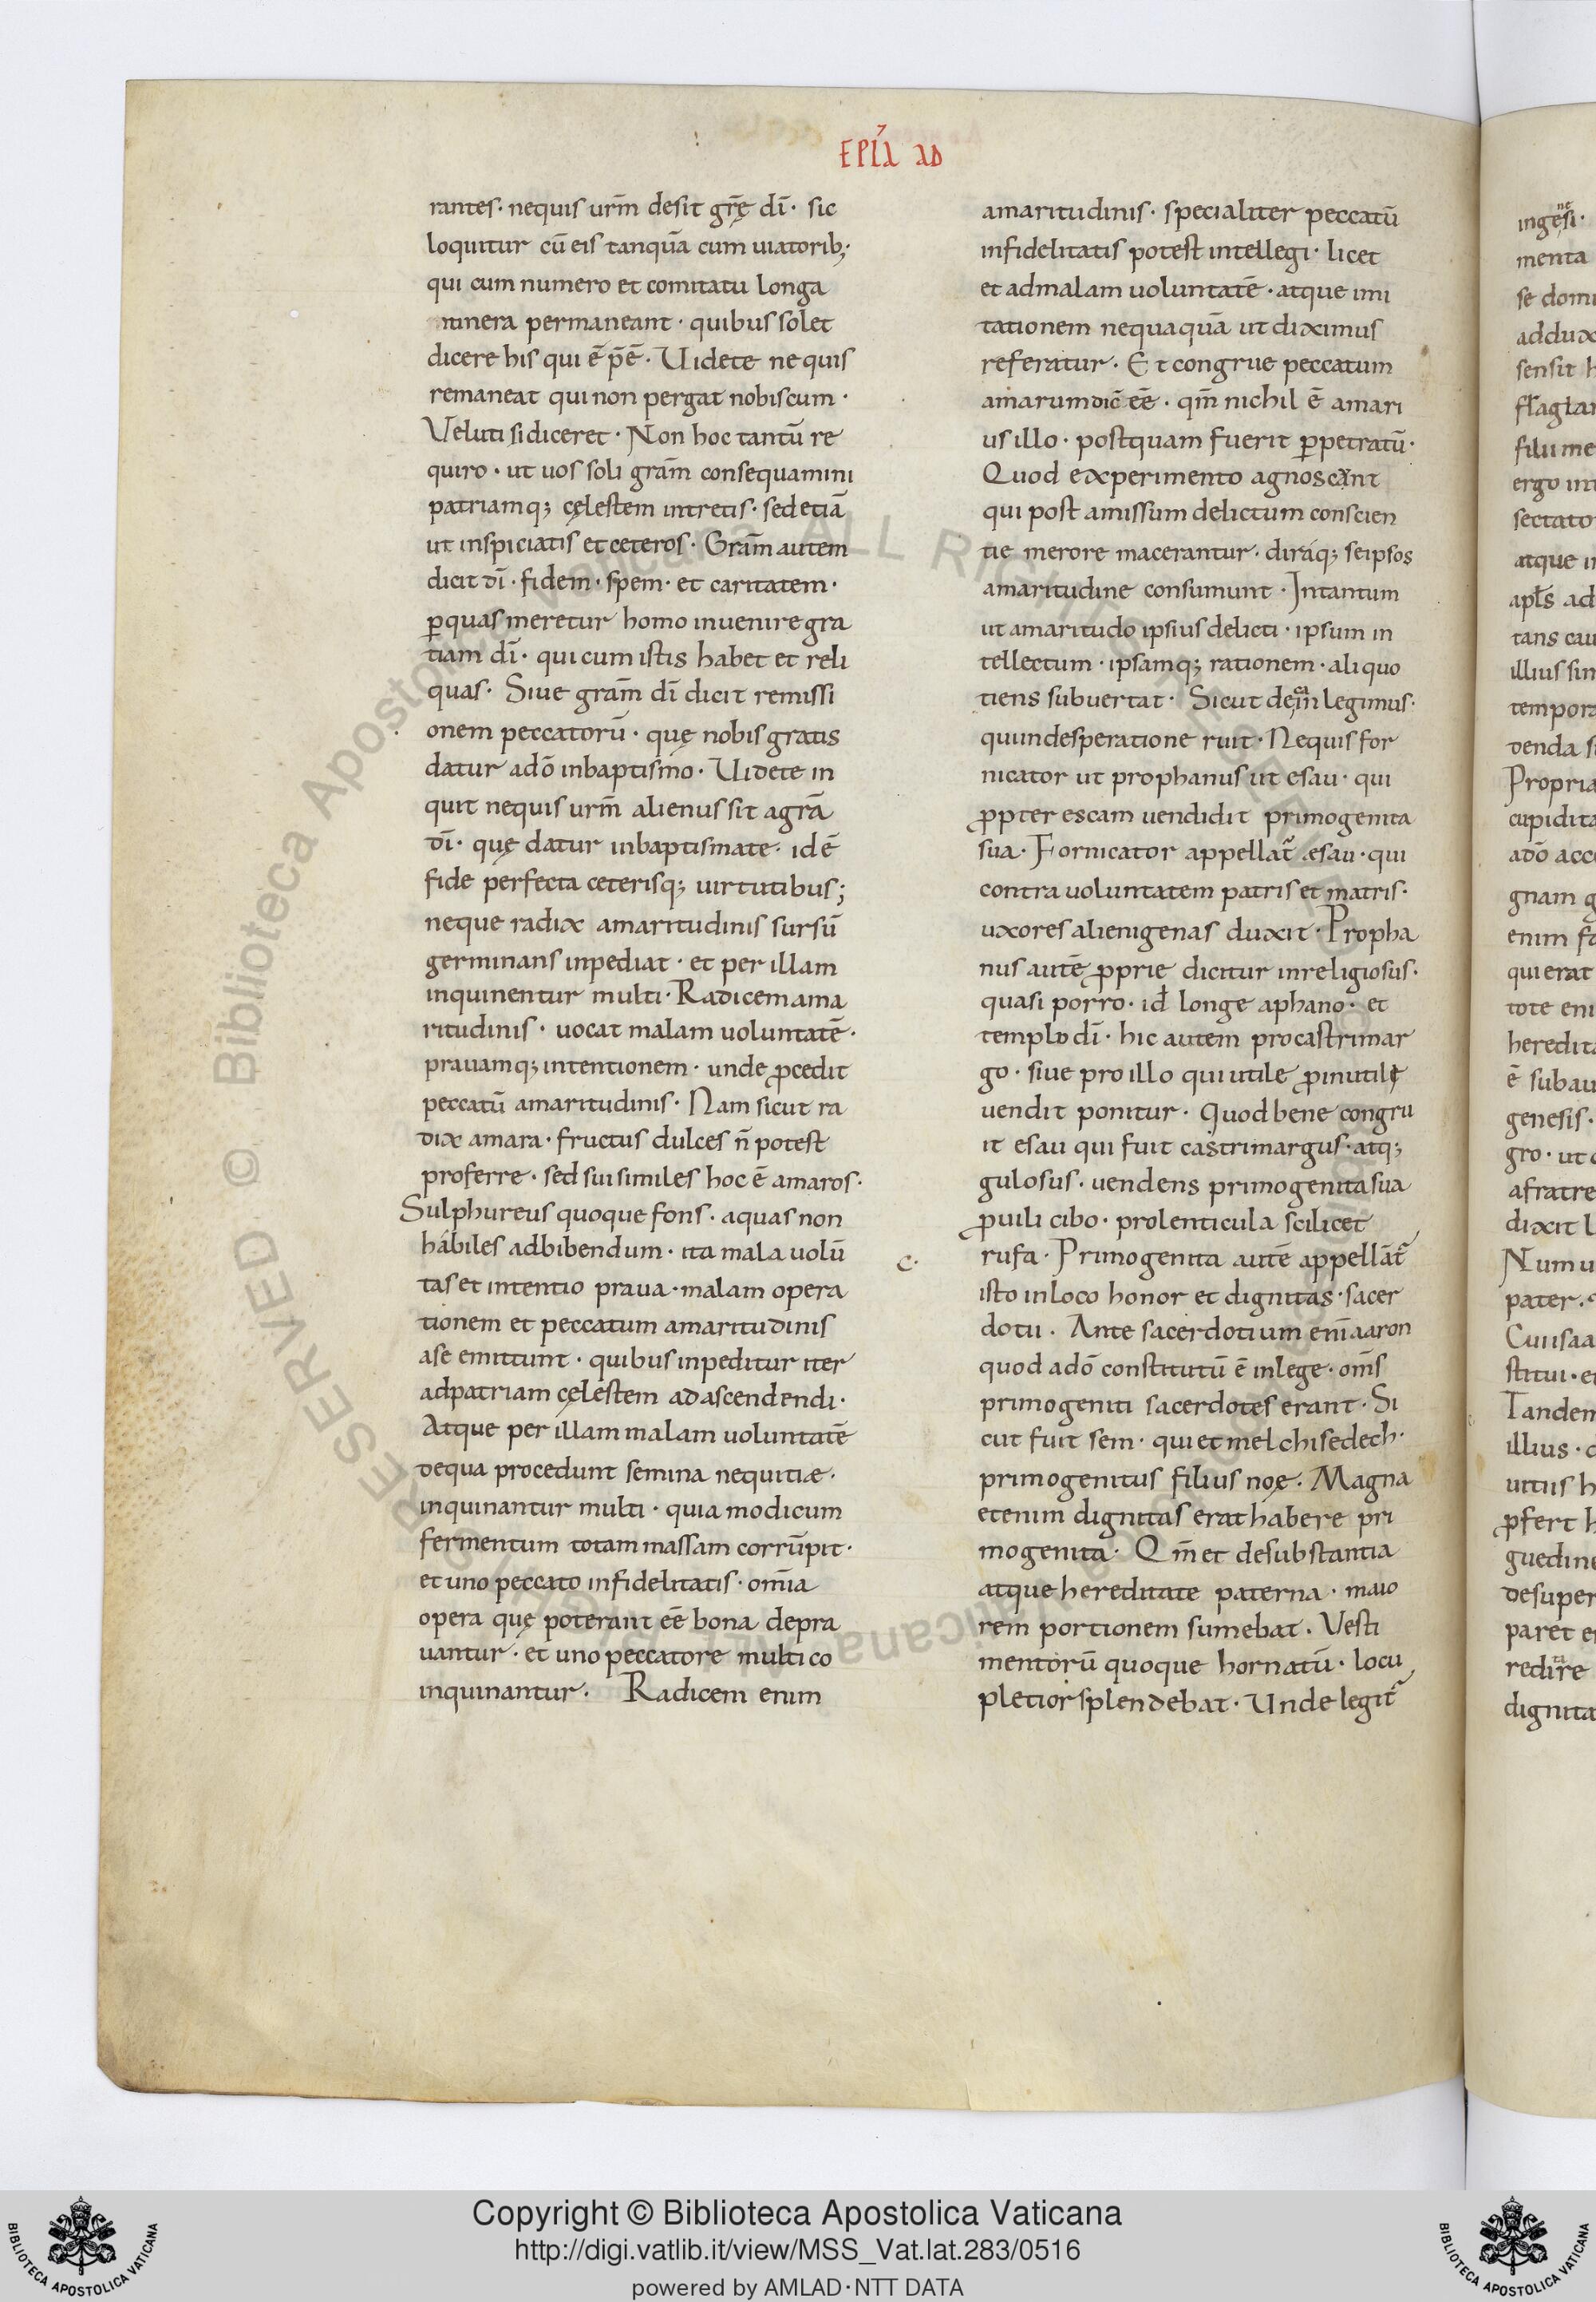 EPLA AD
rantes· nequis urm̄ desit grę̄ dī· sic
loquitur cū eis tanquā cum uiatorib;·
qui cum numero et comitatu longa
itinera permaneant· quibus solet
dicere his qui ē p̄ē· Uidete ne quis
remaneat qui non pergat nobiscum·
Veluti si diceret· Non hoc tantū re
quiro· ut uos soli gram̄ consequamini
patriamq; cęlestem intretis· sed etiā
ut inspiciatis et ceteros· Gram̄ autem
dicit dī· fidem· spem· et caritatem·
ꝑ quas meretur homo inuenire gra
tiam dī· qui cum istis habet et reli
quas· Siue gram̄ dī dicit remissi
onem peccatorū· quę nobis gratis
datur a dō in baptismo· Uidete in
quit nequis urm̄ alienus sit a grā
dī· quę datur in baptismate· id ē
fide perfecta ceterisq; uirtutibus;
neque radix amaritudinis sursū
germinans inpediat· et per illam
inquinentur multi· Radicem ama
ritudinis· uocat malam uoluntatē·
prauamq; intentionem· unde ꝓcedit
peccatū amaritudinis· Nam sicut ra
dix amara· fructus dulces n̄ potest
proferre· sed sui similes hoc ē amaros·
Sulphureus quoque fons· aquas non
hábiles ad bibendum· ita mala uolū
tas et intentio praua· malam opera
tionem et peccatum amaritudinis
a se emittunt· quibus inpeditur iter
ad patriam cęlestem ad ascendendi·
Atque per illam malam uoluntatē
de qua procedunt semina nequitiæ·
inquinantur multi· quia modicum
fermentum totam massam corrūpit·
et uno peccato infidelitatis· om̄ia
opera quę poterant eē bona depra
uantur· et uno peccatore multi co
inquinantur· Radicem enim
amaritudinis· specialiter peccatū
infidelitatis potest intellegi· licet
et ad malam uoluntatē· atque imi
tationem nequaquā ut diximus
referatur· Et congrue peccatum
amarum dic̄ eē· qm̄ nichil ē amari
us illo· postquam fuerit ꝑpetratū·
Quod experimento agnoscant
qui post amissum delictum conscien
tie merore macerantur· diráq; se ipsos
amaritudine consumunt· Intantum
ut amaritudo ipsius delicti· ipsum in
tellectum· ipsamq; rationem· aliquo
tiens subuertat· Sicut de legimus·
qui in desperatione ruit· Nequis for
nicator ut prophanus ut esau· qui
ꝓpter escam uendidit primogenita
sua· Fornicator appellat᷑ æsau· qui
contra uoluntatem patris et matris·
uxores alienigenas duxit· Propha
nus autē ꝓprie dicitur inreligiosus·
quasi porro· id̄ longe a phano· et
templo dī· hic autem pro castrimar
go· siue pro illo qui utile ꝓ inutile
uendit ponitur· Quod bene congru
it esau qui fuit castrimargus· atq;
gulosus· uendens primogenita sua
ꝓ uili cibo· pro lenticula scilicet
C·
rufa· Primogenita autē appellāt᷑
isto in loco honor et dignitas· sacer
dotii· Ante sacerdotium enī aaron
quod a dō constitutū ē in lege· om̄s
primogeniti sacerdotes erant· Si
cut fuit sem· qui et melchisedech·
primogenitus filius noę· Magna
etenim dignitas erat habere pri
mogenita· Qm̄ et de substantia
atque hereditate paterna· maio
rem portionem sumebat· Vesti
mentorū quoque hornatū· locu
pletior splendebat· Unde legit᷑
menta
se domi
addux
sensit h
filii me
ergo
sectato
atque
apl̄s ad
tans cau
illius sim
tempora
Propria
cupidita
a dō acc
gnam g
enim fa
qui erat
tote eni
heredita
ē subau
genesis·
gro· ut
a fratre
dixit
Num
pater·
stitui·
Tandem
illius·
ꝓfert h
guedine
desuper
paret
dignita
© Biblioteca Apostolica Vaticana ALL RIGHTS RESERVED
Copyright © Biblioteca Apostolica Vaticana
http://digi.vatlib.it/view/MSS_Vat.lat.283/0516
powered by AMLAD·NTT DATA
BIBLIOTECA APOSTOLICA VATICANA
BIBLIOTECA APOSTOLICA VATICANA